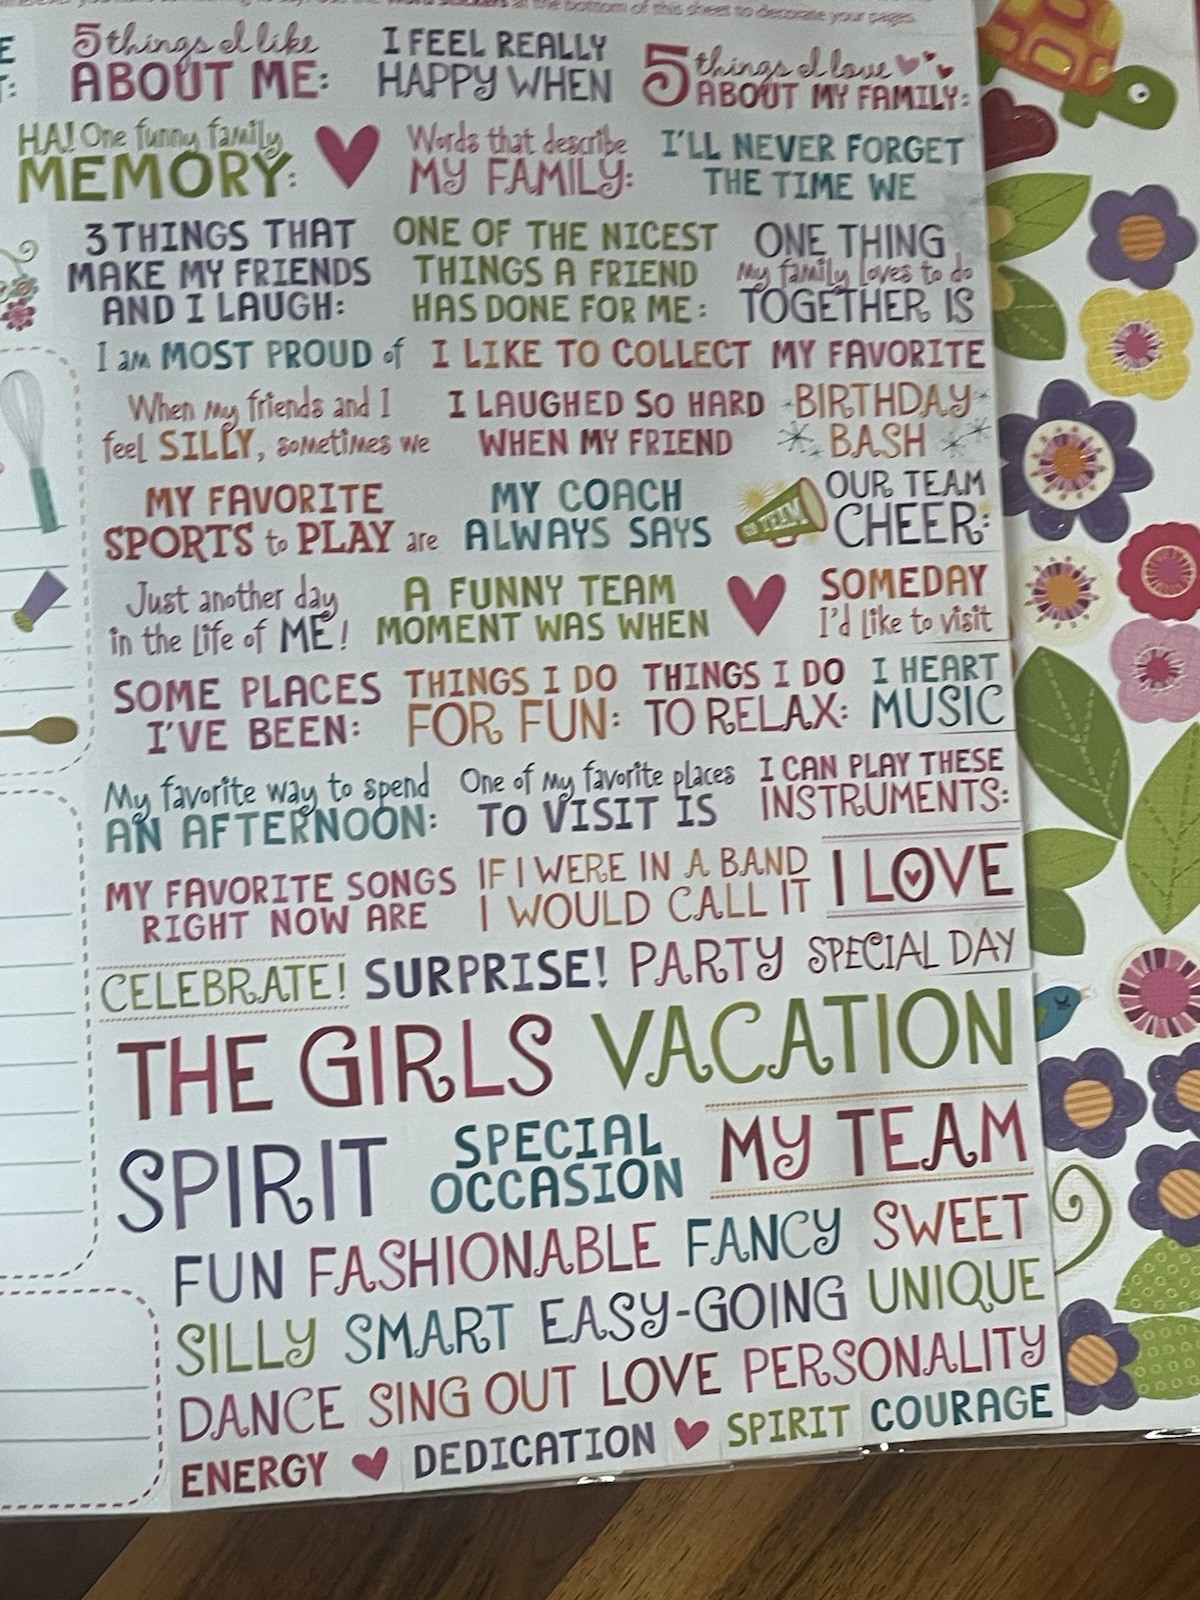 at the bottom of this sheet to decorate your pages.
5 things I like
ABOUT ME:
I FEEL REALLY
HAPPY WHEN
5 things I love
ABOUT MY FAMILY:
HA! One funny family
MEMORY:
Words that describe
MY FAMILY:
I'LL NEVER FORGET
THE TIME WE
3 THINGS THAT
MAKE MY FRIENDS
AND I LAUGH:
ONE OF THE NICEST
THINGS A FRIEND
HAS DONE FOR ME:
ONE THING
My family loves to do
TOGETHER IS
I am MOST PROUD of
I LIKE TO COLLECT
MY FAVORITE
When my friends and I
feel SILLY, sometimes we
I LAUGHED SO HARD
WHEN MY FRIEND
BIRTHDAY
BASH
MY FAVORITE
SPORTS to PLAY are
MY COACH
ALWAYS SAYS
TEAM
OUR TEAM
CHEER:
Just another day
in the life of ME!
A FUNNY TEAM
MOMENT WAS WHEN
SOMEDAY
I'd like to visit
SOME PLACES
I'VE BEEN:
THINGS I DO
FOR FUN:
THINGS I DO
TO RELAX:
I HEART
MUSIC
My favorite way to spend
AN AFTERNOON:
One of my favorite places
TO VISIT IS
I CAN PLAY THESE
INSTRUMENTS:
MY FAVORITE SONGS
RIGHT NOW ARE
IF I WERE IN A BAND
I WOULD CALL IT
I LOVE
CELEBRATE!
SURPRISE!
PARTY
SPECIAL DAY
THE GIRLS
VACATION
SPIRIT
SPECIAL
OCCASION
MY TEAM
FUN FASHIONABLE FANCY SWEET
SILLY SMART EASY-GOING UNIQUE
DANCE SING OUT LOVE PERSONALITY
ENERGY DEDICATION SPIRIT COURAGE